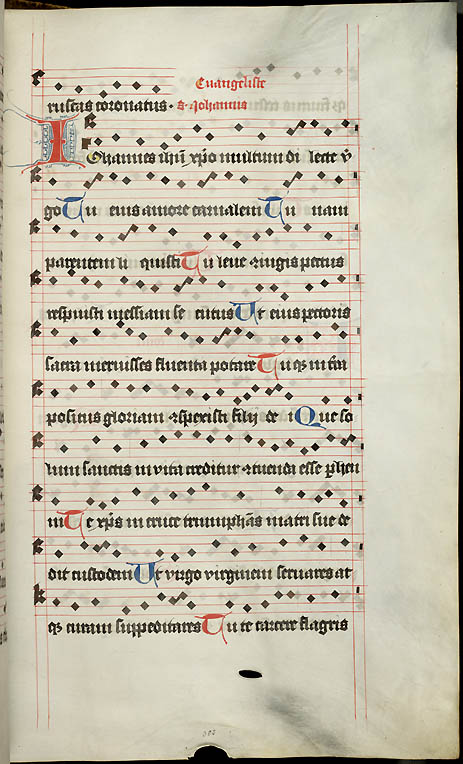 Euangeliste
rustas coronatus. S. Johannis
Iohannes ihu xpo multum di lecte v
go Tu eius amore carnalem Tu naui
parentem li quisti Tu leue coniugis pectus
respuisti messiam se cutus Ut eius pectoris
sacra meruisses fluenta potare Tuq3 in tra
positus gloriam aspexisti filij de i Que so
lum sanctis in vita creditur contuendi esse phen
nis Te xps in cruce triumphans matri sue de
dit custodem Ut virgo virginem seruares at
q3 curam suppeditares Tu te carcere flagris